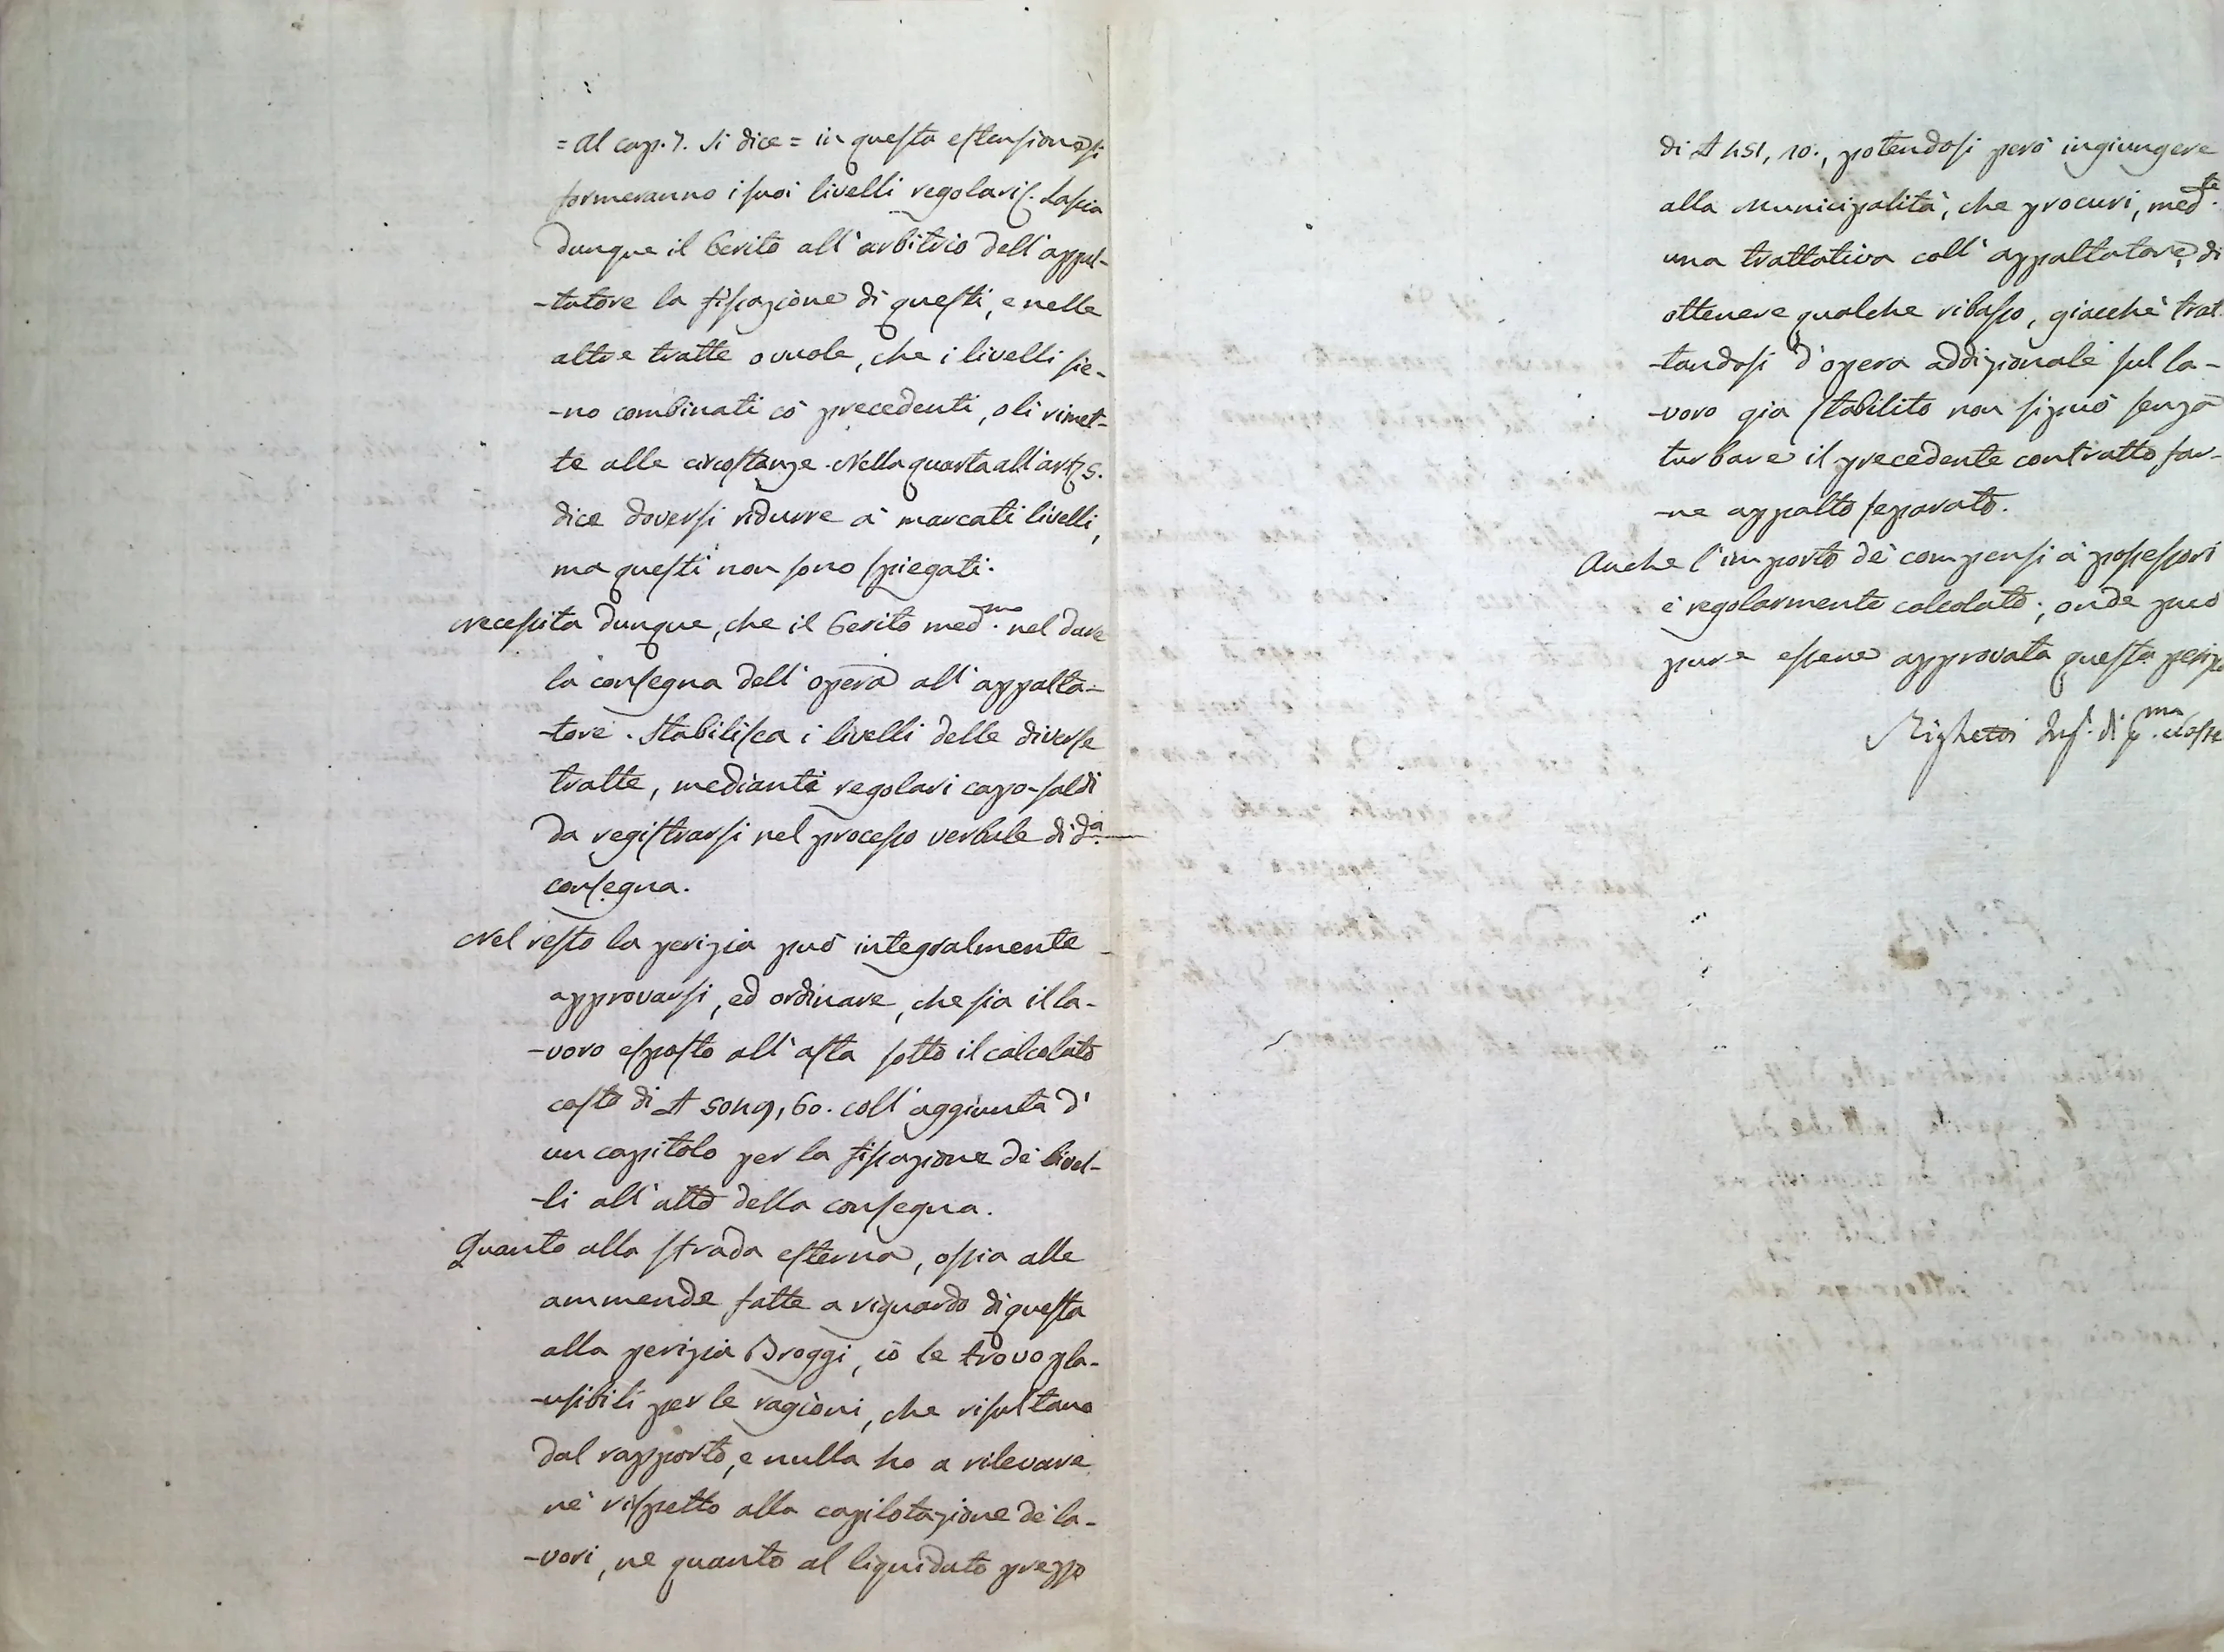 = Al cap. 7. Si dice = in questa estensione si
formeranno i suoi livelli regolari =. Lascia
dunque il Perito all'arbitrio dell'appal-
-tatore la fissazione di questi, e nelle
altre tratte o vuole, che i livelli sie-
-no combinati cò precedenti, o li rimet-
te alle circostanze. Nella quarta all'art. 5.
dice doversi ridurre à marcati livelli,
ma questi non sono spiegati.
Necessita dunque, che il Perito med.mo nel dare
la consegna dell'opera all'appalta-
-tore. Stabilisca i livelli delle diverse
tratte, mediante regolari capo-saldi
da registrarsi nel processo verbale di d.a
consegna.
Nel resto la perizia può integralmente
approvarsi, ed ordinare, che sia il la-
-voro esposto all'asta sotto il calcolato
costo di 60. coll'aggiunta d'
un capitolo per la fissazione de livel-
-li all'atto della consegna.
Quanto alla strada esterna, ossia alle
ammende fatte a riguardo di questa
alla perizia Broggi, iò le trovo pla-
-usibili per le ragioni, che risultano
dal rapporto, e nulla ho a rilevare
nè rispetto alla capilotazione dè la-
-vori, ne quanto al liquidato prezzo
di 10., potendosi però ingiungere
alla Municipalità, che procuri, med.te
una trattativa coll'appaltatore, di
ottenere qualche ribasso, giacchè trat
-tandosi d'opera addizionale sul la-
-voro gia stabilito non si può senza
turbare il precedente contratto far-
-ne appalto separato.
Anche l'importo dè compensi à possessori
è regolarmente calcolato; onde può
pure essere approvata questa perizia
Righetti Ing. di p.ma classe